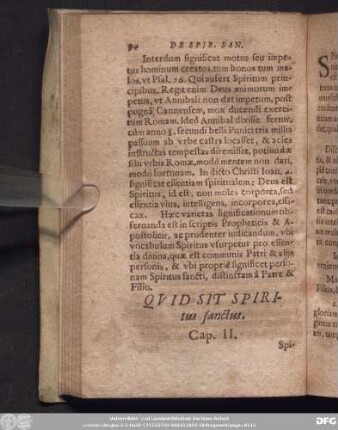 DE SPIR. SAN.
Interdum significat motus seu impe-
tus hominum creatos, tum bonos tum ma-
los, vt Psal. 76. Qui aufert Spiritum prin-
cipibus. Regit enim Deus animorum im-
petus, vt Annibali non dat impetum, post
pugnã Cannensem, mox ducendi exerci-
tum Romam. Ideò Annibal dixisse fertur,
cùm anno 8. secundi belli Punici tria millia
passuum ab vrbe castra locasset, & acies
instructas tempestas diremisset, potiundæ
sibi vrbis Romæ, modò mentem non dari,
modò fortunam. In dicto Christi Ioan. 4.
significat essentiam spiritualem; Deus est
Spiritus, id est, non moles corporea, sed
essentia viua, intelligens, incorporea, effi-
cax. Hæc varietas significationum ob-
seruanda est in scriptis Propheticis & A-
postolicis, ac prudenter iudicandum, vbi
vocabulum Spiritus vsurpetur pro essen-
tia diuina, quæ est communis Patri & alijs
personis, & vbi propriè significet perso-
nam Spiritus sancti, distinctam à Patre &
Filio.
QVID SIT SPIRI-
tus sanctus.
Cap. II.
Spi-
DFG